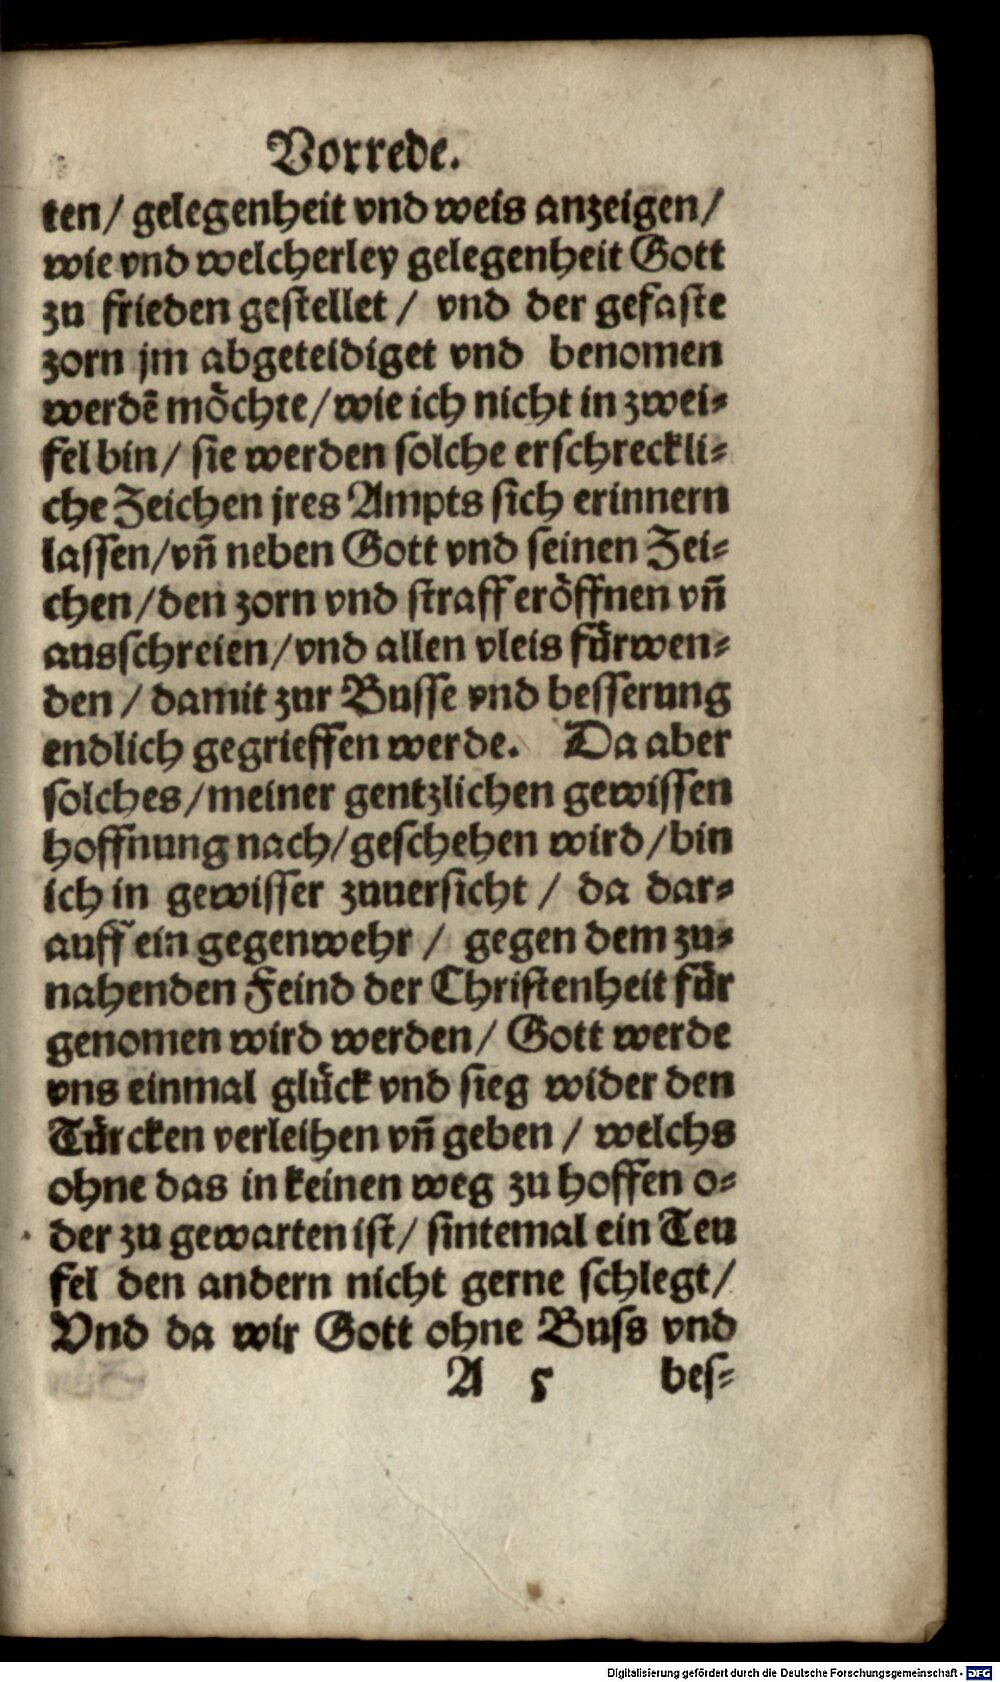 Vorrede.
ten/ gelegenheit vnd weis anzeigen/
wie vnd welcherley gelegenheit Gott
zu frieden gestellet / vnd der gefaste
zorn jm abgeteidiget vnd benomen
werdẽ moͤchte/wie ich nicht in zwei⸗
fel bin/ sie werden solche erschreckli⸗
che Zeichen jres Ampts sich erinnern
lassen/vñ neben Gott vnd seinen Zei⸗
chen/den zorn vnd straff eroͤffnen vñ
ausschreien/vnd allen vleis fuͤrwen⸗
den / damit zur Busse vnd besserung
endlich gegrieffen werde. Da aber
solches/meiner gentzlichen gewissen
hoffnung nach/geschehen wird/bin
ich in gewisser zuuersicht / da dar⸗
auff ein gegenwehr / gegen dem zu⸗
nahenden Feind der Christenheit fuͤr
genomen wird werden/ Gott werde
vns einmal gluͤck vnd sieg wider den
Tuͤrcken verleihen vñ geben / welchs
ohne das in keinen weg zu hoffen o⸗
der zu gewarten ist/ sintemal ein Teu
fel den andern nicht gerne schlegt/
Vnd da wir Gott ohne Buss vnd
A 5 bes⸗
Digitalisierung gefördert durch die Deutsche Forschungsgemeinschaft - DFG